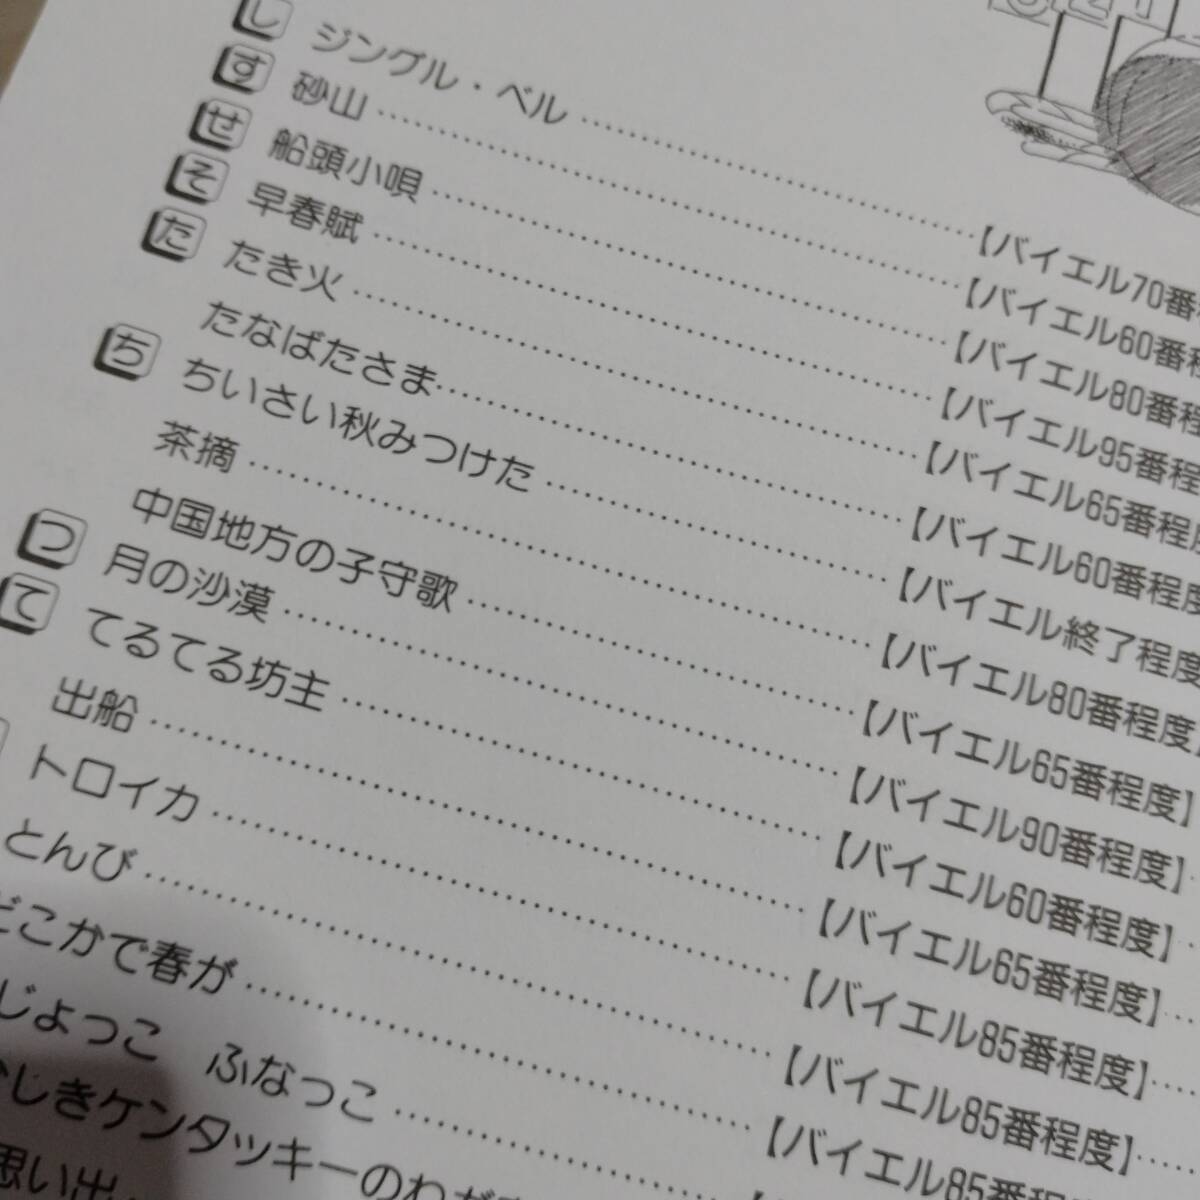 し ジングル・ベル……【バイエル70番
す 砂山……【バイエル60番程
せ 船頭小唄……【バイエル80番程
そ 早春賦……【バイエル95番程
た たき火……【バイエル65番程度
たなばたさま……【バイエル60番程度
ち ちいさい秋みつけた……【バイエル終了程度
茶摘……【バイエル80番程度】
中国地方の子守歌……【バイエル65番程度】
つ 月の沙漠……【バイエル90番程度】
て てるてる坊主……【バイエル60番程度】
出船……【バイエル65番程度】
トロイカ……【バイエル85番程度】
とんび……【バイエル85番程度】
どこかで春が……【バイエル85番程度
じょっこ　ふなっこ……
しきケンタッキーのわが
思い出